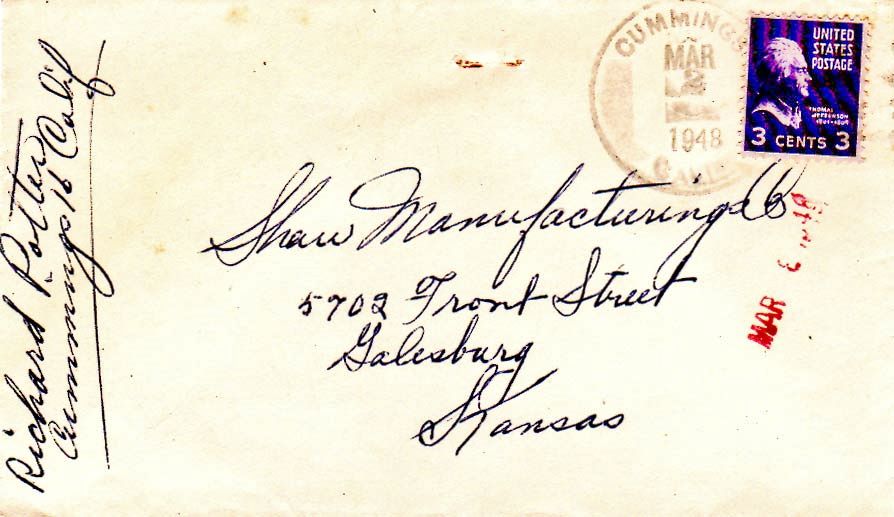 Richard Potter
Cummings Calif
CUMMINGS
MAR
2
1948
CALIF.
UNITED
STATES
POSTAGE
THOMAS
JEFFERSON
1801-1809
3 CENTS 3
Shaw Manufacturing Co
5702 Front Street
Galesburg
Kansas
MAR